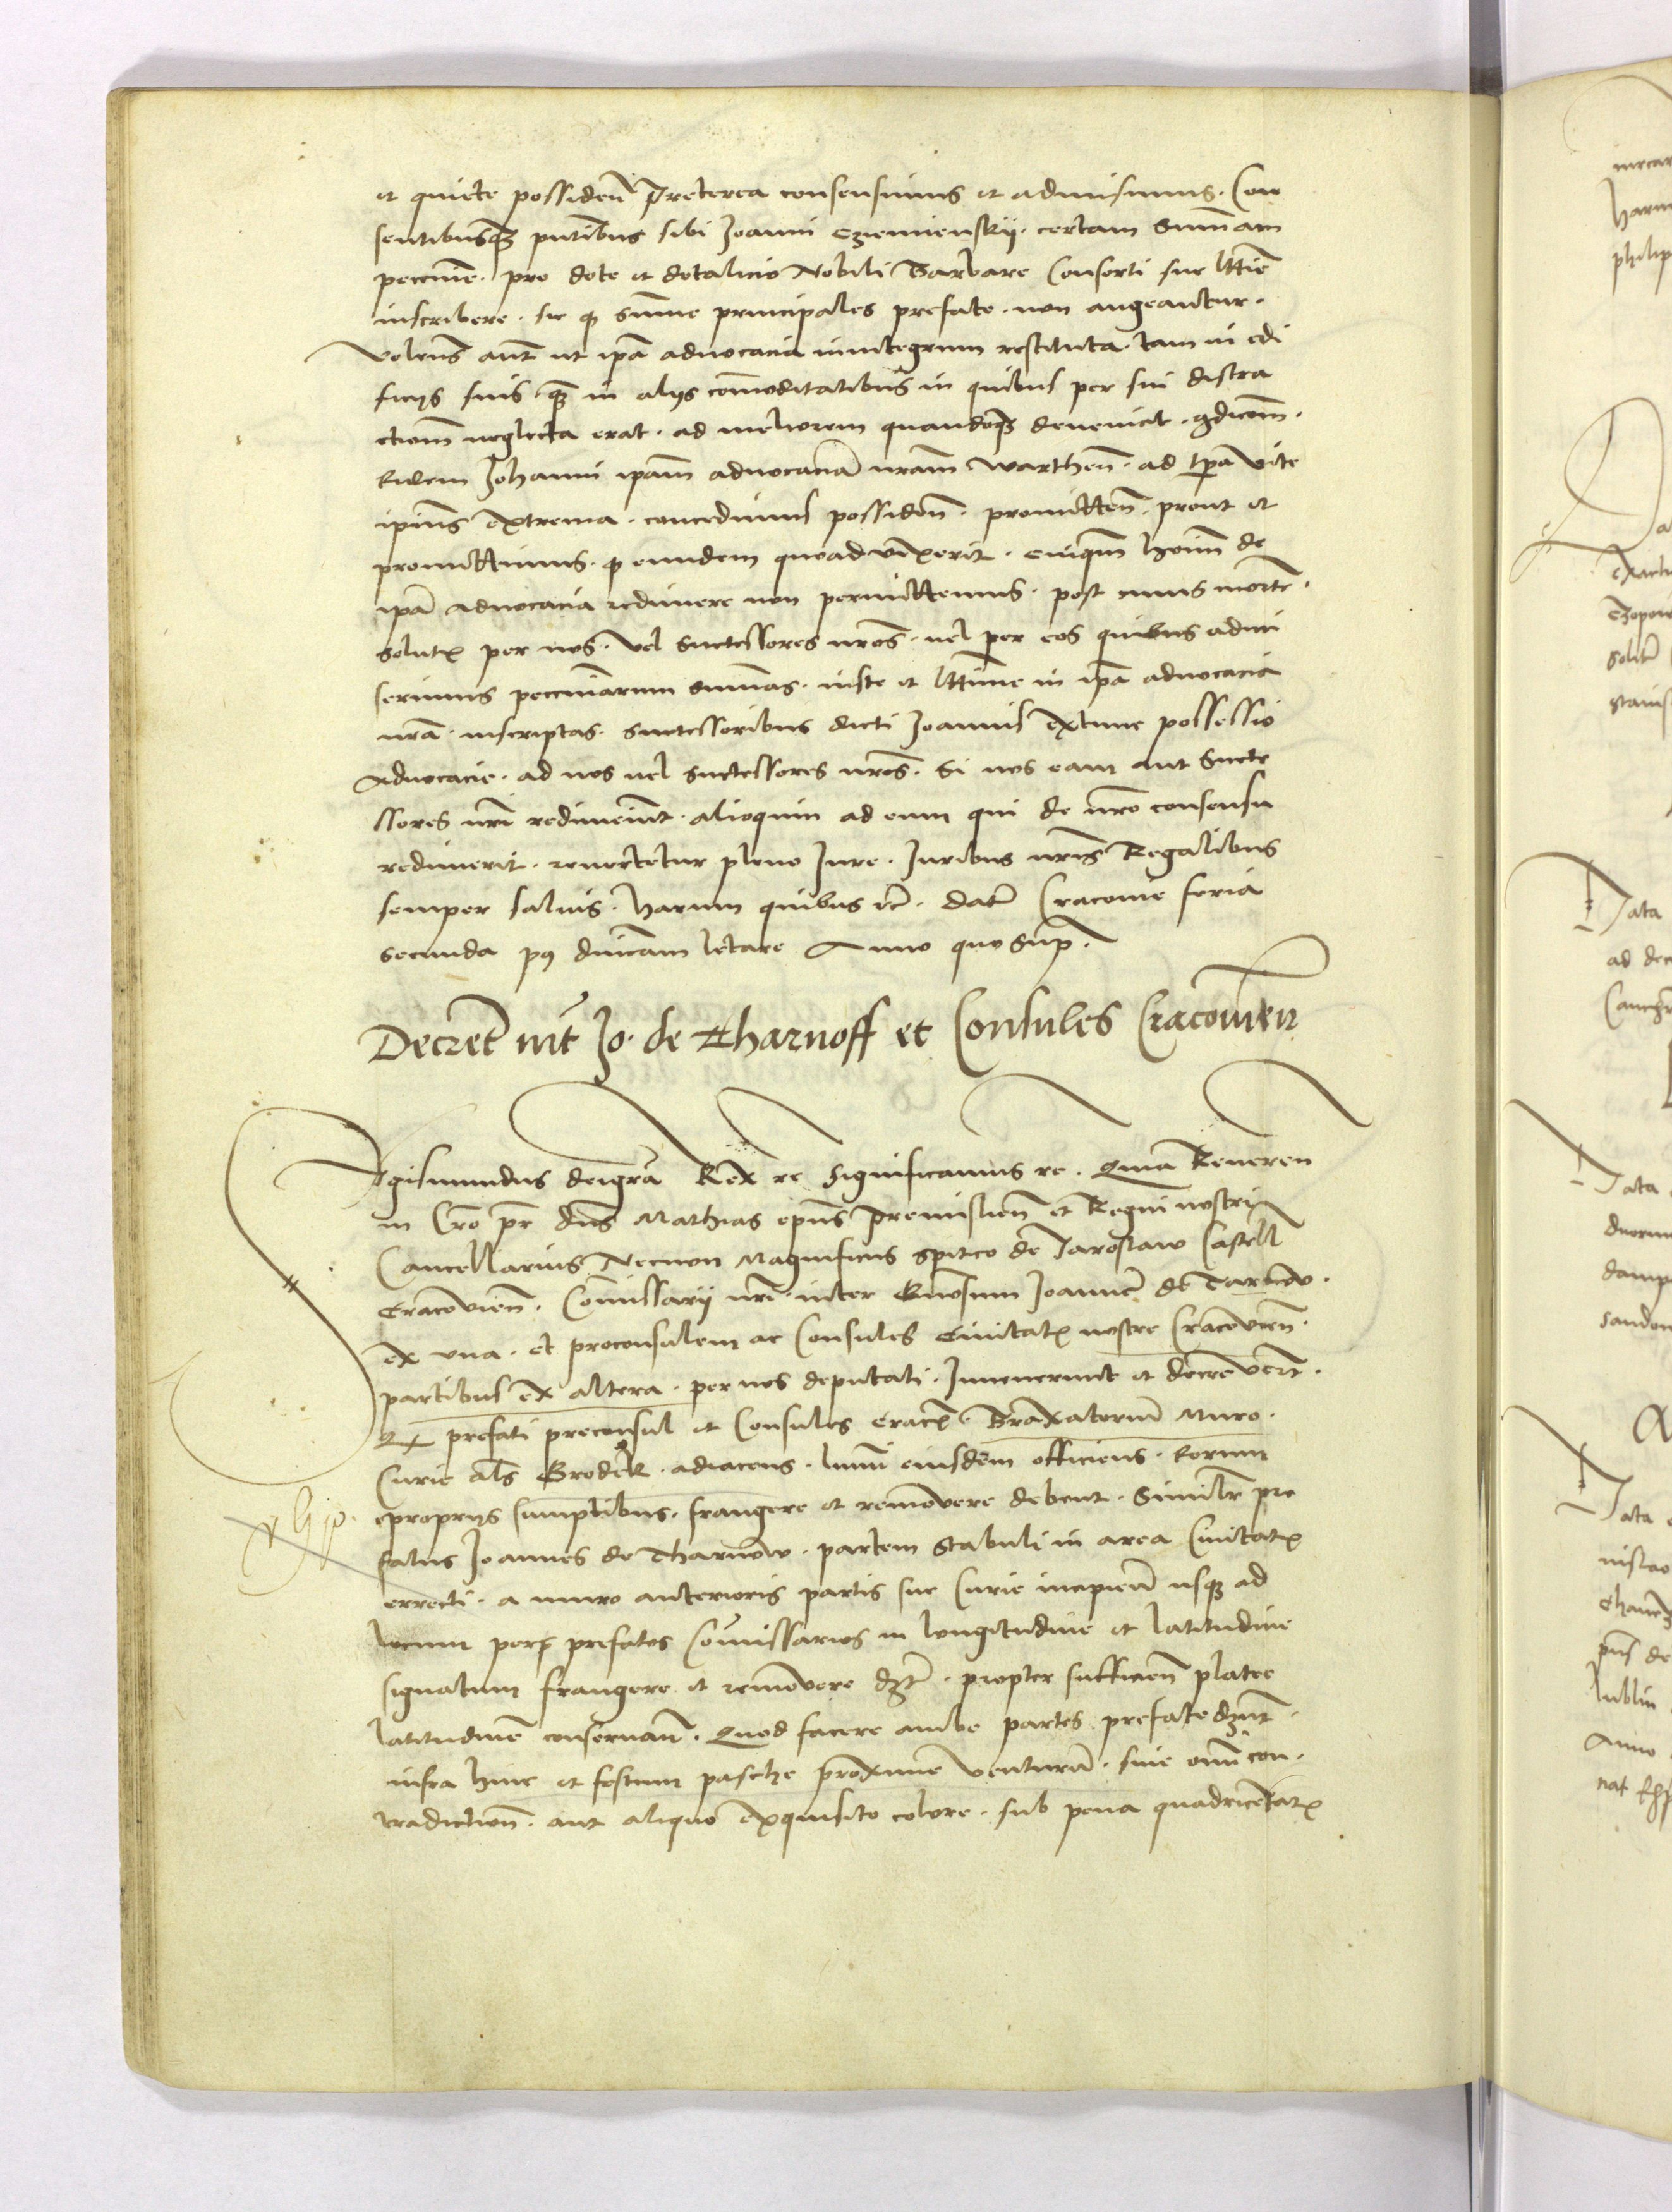 et quiete possideñ Preterea consensimus et admisimus. Con
sentimusq3 putibus sibi Joanni Cziemienskij. certam Sum̄am
peccunie. pro dote et dotalicio Nobili Barbare Consorti sue lttie
inscribere. sic q sum̄e principales prefate. non augeantur.
Volens aūt ut ipa advocacia inintegrum restituta. tam in edi
ficijs suis. q3 in alijs com̄oditatibus in quibus per sui distra
ctiom̄ neglecta erat. ad meliorem quandoq3 deveniat. 9dicom̄.
Eidem Johanni ipam̄ advocaciā nr̄am Warthen̄. ad tpa vite
ipius extrema. concedimus possiden̄. promitten̄. prout et
promittimus. q eundem quoad vixerit. cuiq3 hoīm de
ipā advocacia redimere non permittemus. post cuius morte.
solutꝭ per nos. vel Successores nr̄os. vel per eos quibus admi
serimus peccuniarum sum̄as. iuste et lttime in ipa advocacia
nr̄a. inscriptas. Successoribus dicti Joannis extunc possessio
Advocacie. ad nos vel Successores nr̄os. Si nos eam aut Succe
ssores nr̄i redimerint. alioquin ad eum qui de nr̄o consensu
redimerit. revertetur pleno Jure. Juribus nr̄is Regalibus
semper salvis. harum quibus etc. dat̄ Cracovie feria
secunda p9 dn̄icam letare Anno quo Sup̄.
Decret̄ int̄ Jo. de Tharnoff et Consules Cracovien
Sigismundus deigr̄a Rex re Significamus re. Quia Reveren
in Cro pr dn̄s Mathias ep̄us Premislien̄ et Regni nostri
Cancellarius Necnon Magnificus Spitco de Jaroslaw Castell
Cracovien̄. Com̄issarij nr̄i. inter Gn̄osum Joannē de Tarnow.
ex vna. et proconsulem ac Consules Civitatꝭ nostre Cracovien̄.
partibus ex altera. per nos deputati. Invenerunt et decreverūt.
Qꝭ prefati preconsul et Consules Cracꝭ. Braxatoriū Muro.
Curie als Grodek. adiacens. lumī eiusdem officiens. Eorum
proprijs sumptibus. frangere et removere debent. Similr̄ pre
fatus Joannes de Tharnow. partem Stabuli in area Civitatꝭ
errecti. a muro anterioris partis sue Curie incipien̄ usq3 ad
locum per prefatos Com̄issarios in longitudine et latitudine
signatum frangere et removere d3t. propter sufficien̄ platee
latitudinē conservan̄. Quod facere ambe partes prefate d3unt.
infra hinc et festum pasche proxime venturū. sine om̄i con.
tradiction̄. aut aliquo exquisito colore. sub pena quadricētarꝭ